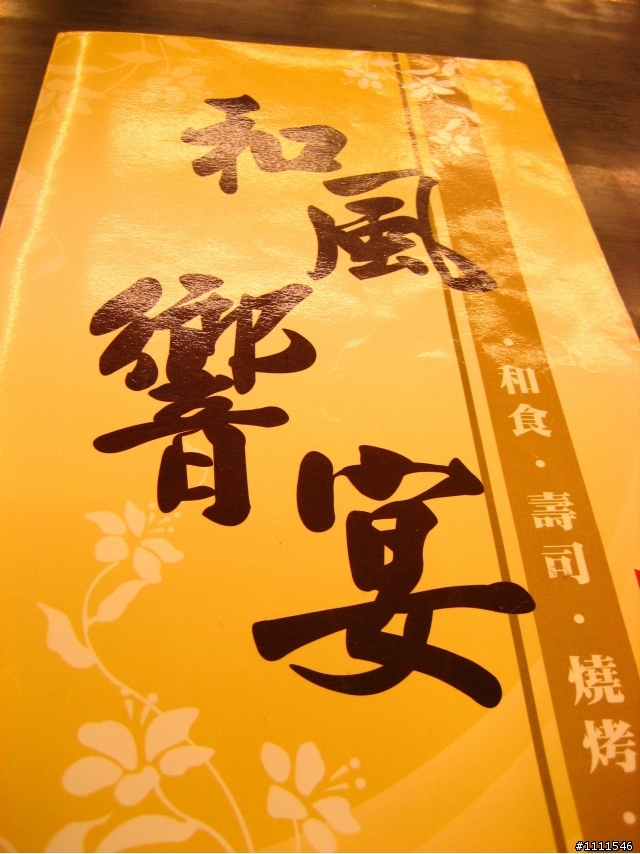 和風
響宴
·和食·壽司·燒烤·
#1111546